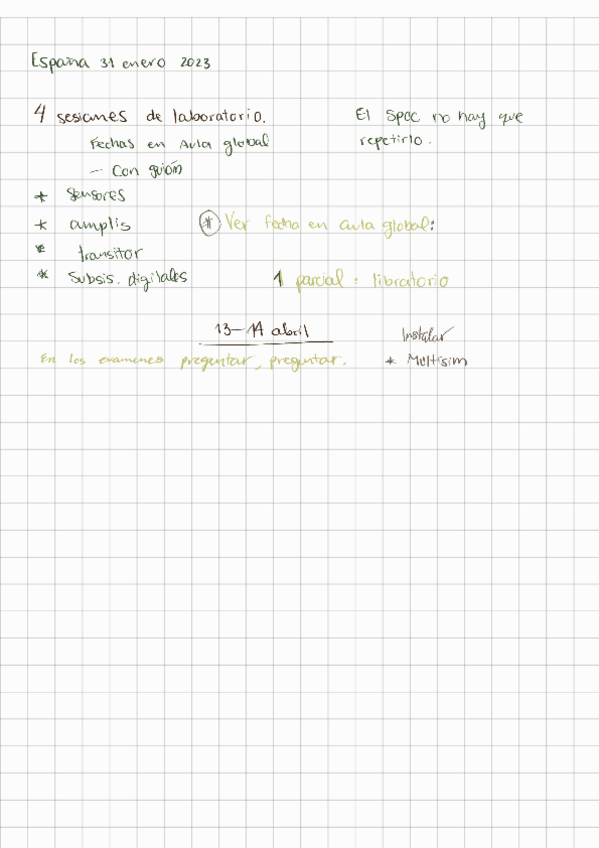 España 31 enero 2023
4 sesiones de laboratorio.
Fechas en Aula global
- Con guión
El Spoc no hay que
repetirlo.
* Sensores
* amplis
* transitor
* Subsis. digitales
* Ver fecha en aula global:
1 parcial: libratorio
13-14 abril
En los examenes preguntar, preguntar.
Instalar
* Multisim